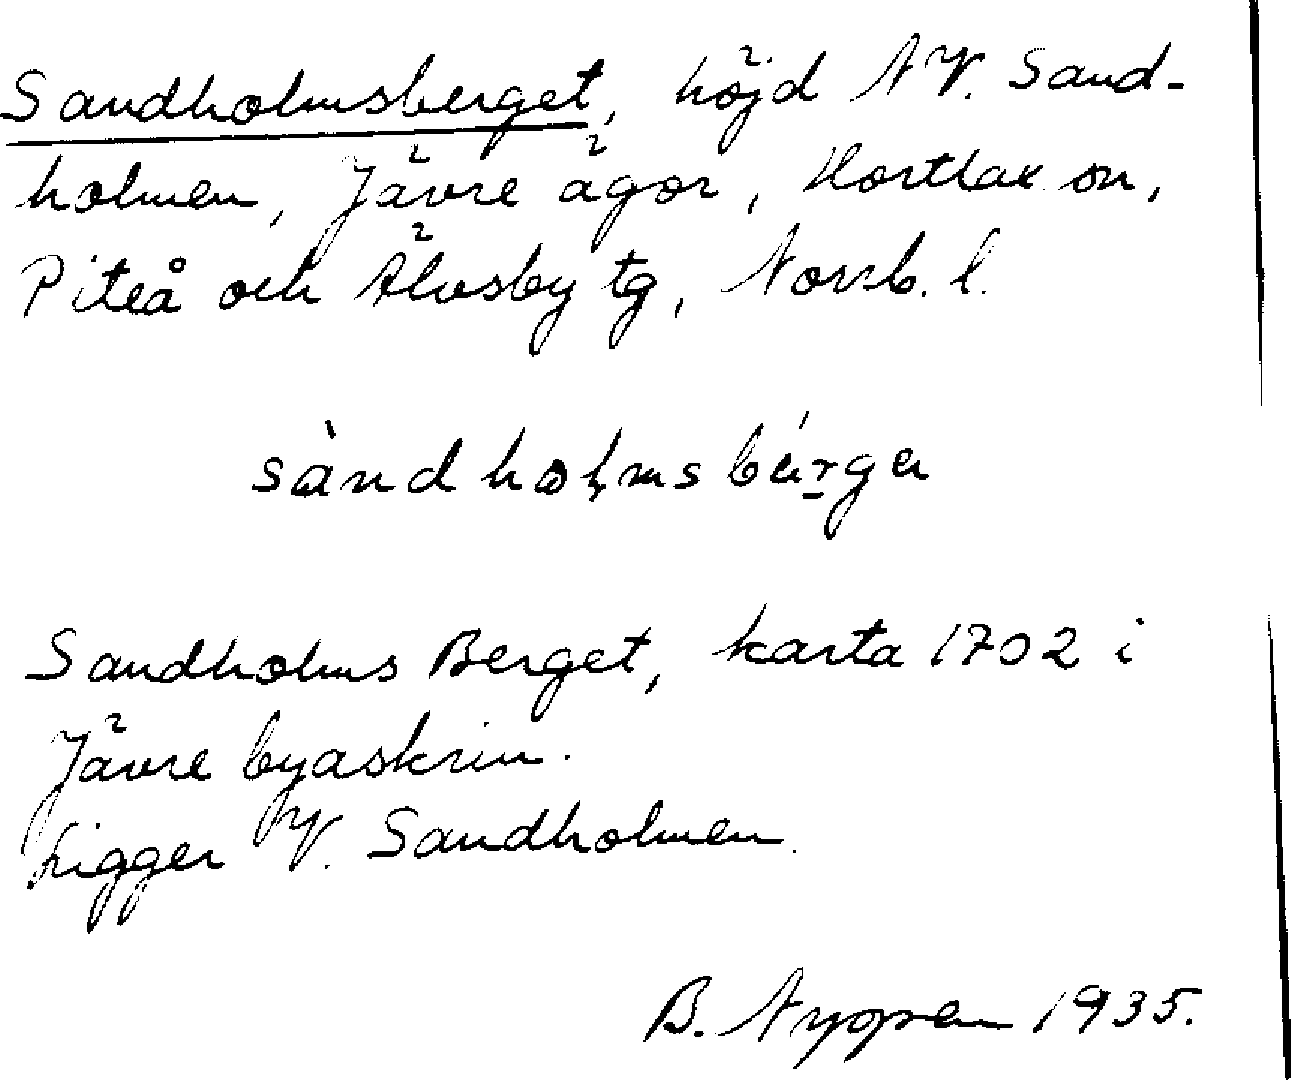 Sandholmsberget, höjd NV. Sand-
holmen, Jävre ägor, Hortlax sn,
Piteå och Älvsby tg, Norrb. l.
sàndholmsbérga
Sandholms Berget, karta 1702 i
Jävre byaskrin.
Ligger V. Sandholmen.
B. Nyppen 1935.